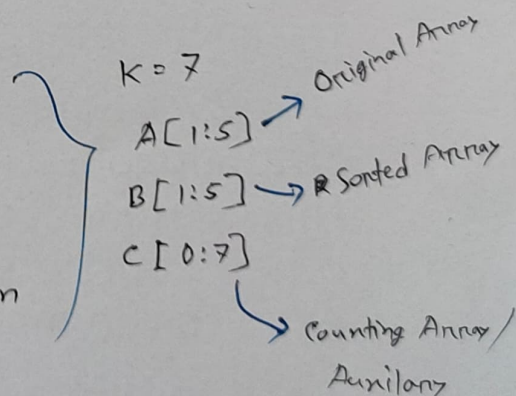 K = 7
Original Array
A[1:5]
B[1:5]
Sorted Array
C[0:7]
n
Counting Array/
Auxilary